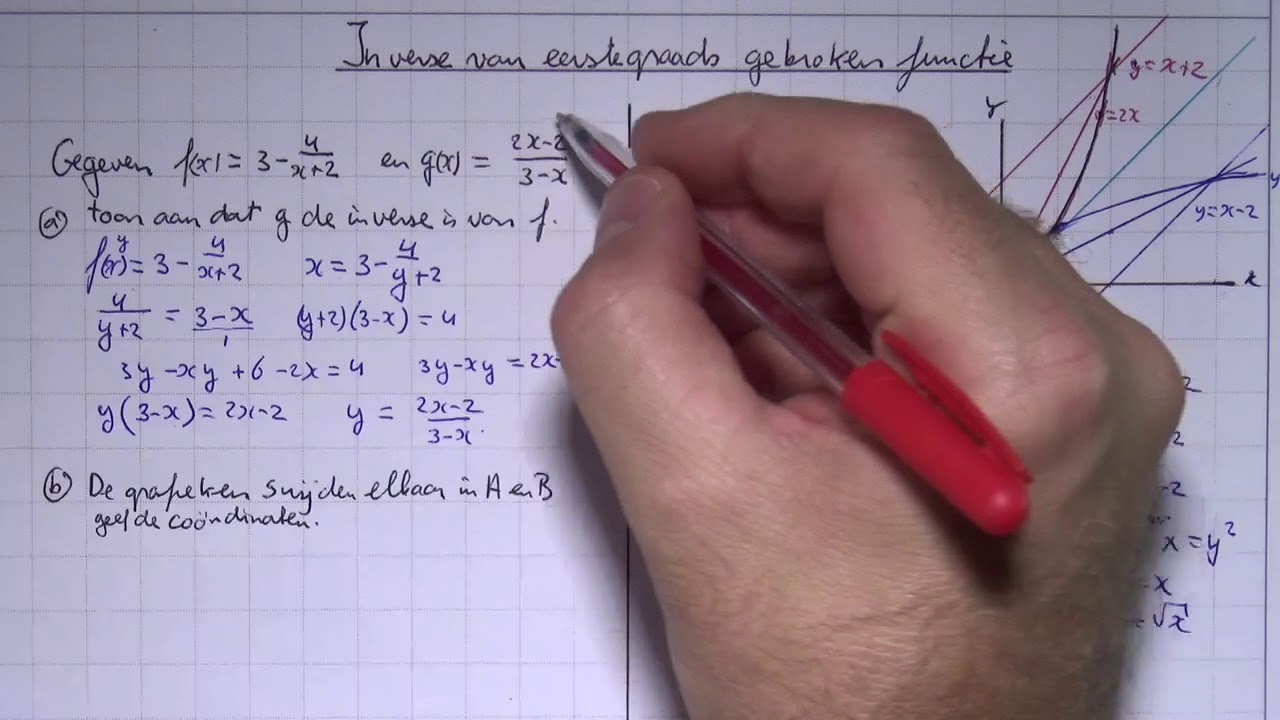 Inverse van eerstegraads gebroken functie
Gegeven f(x) = 3 - 4/(x+2) en g(x) = (2x-2)/(3-x)
a) toon aan dat g de inverse is van f.
y
f(x) = 3 - 4/(x+2) x = 3 - 4/(y+2)
4/(y+2) = (3-x)/1 (y+2)(3-x) = 4
3y - xy + 6 - 2x = 4 3y - xy = 2x-
y(3-x) = 2x-2 y = (2x-2)/(3-x).
b) De grafieken snijden elkaar in A en B
geef de coördinaten.
Y
y = x+2
y = 2x
y
y = x-2
x
2
2
-2
x = y²
-x
= √x